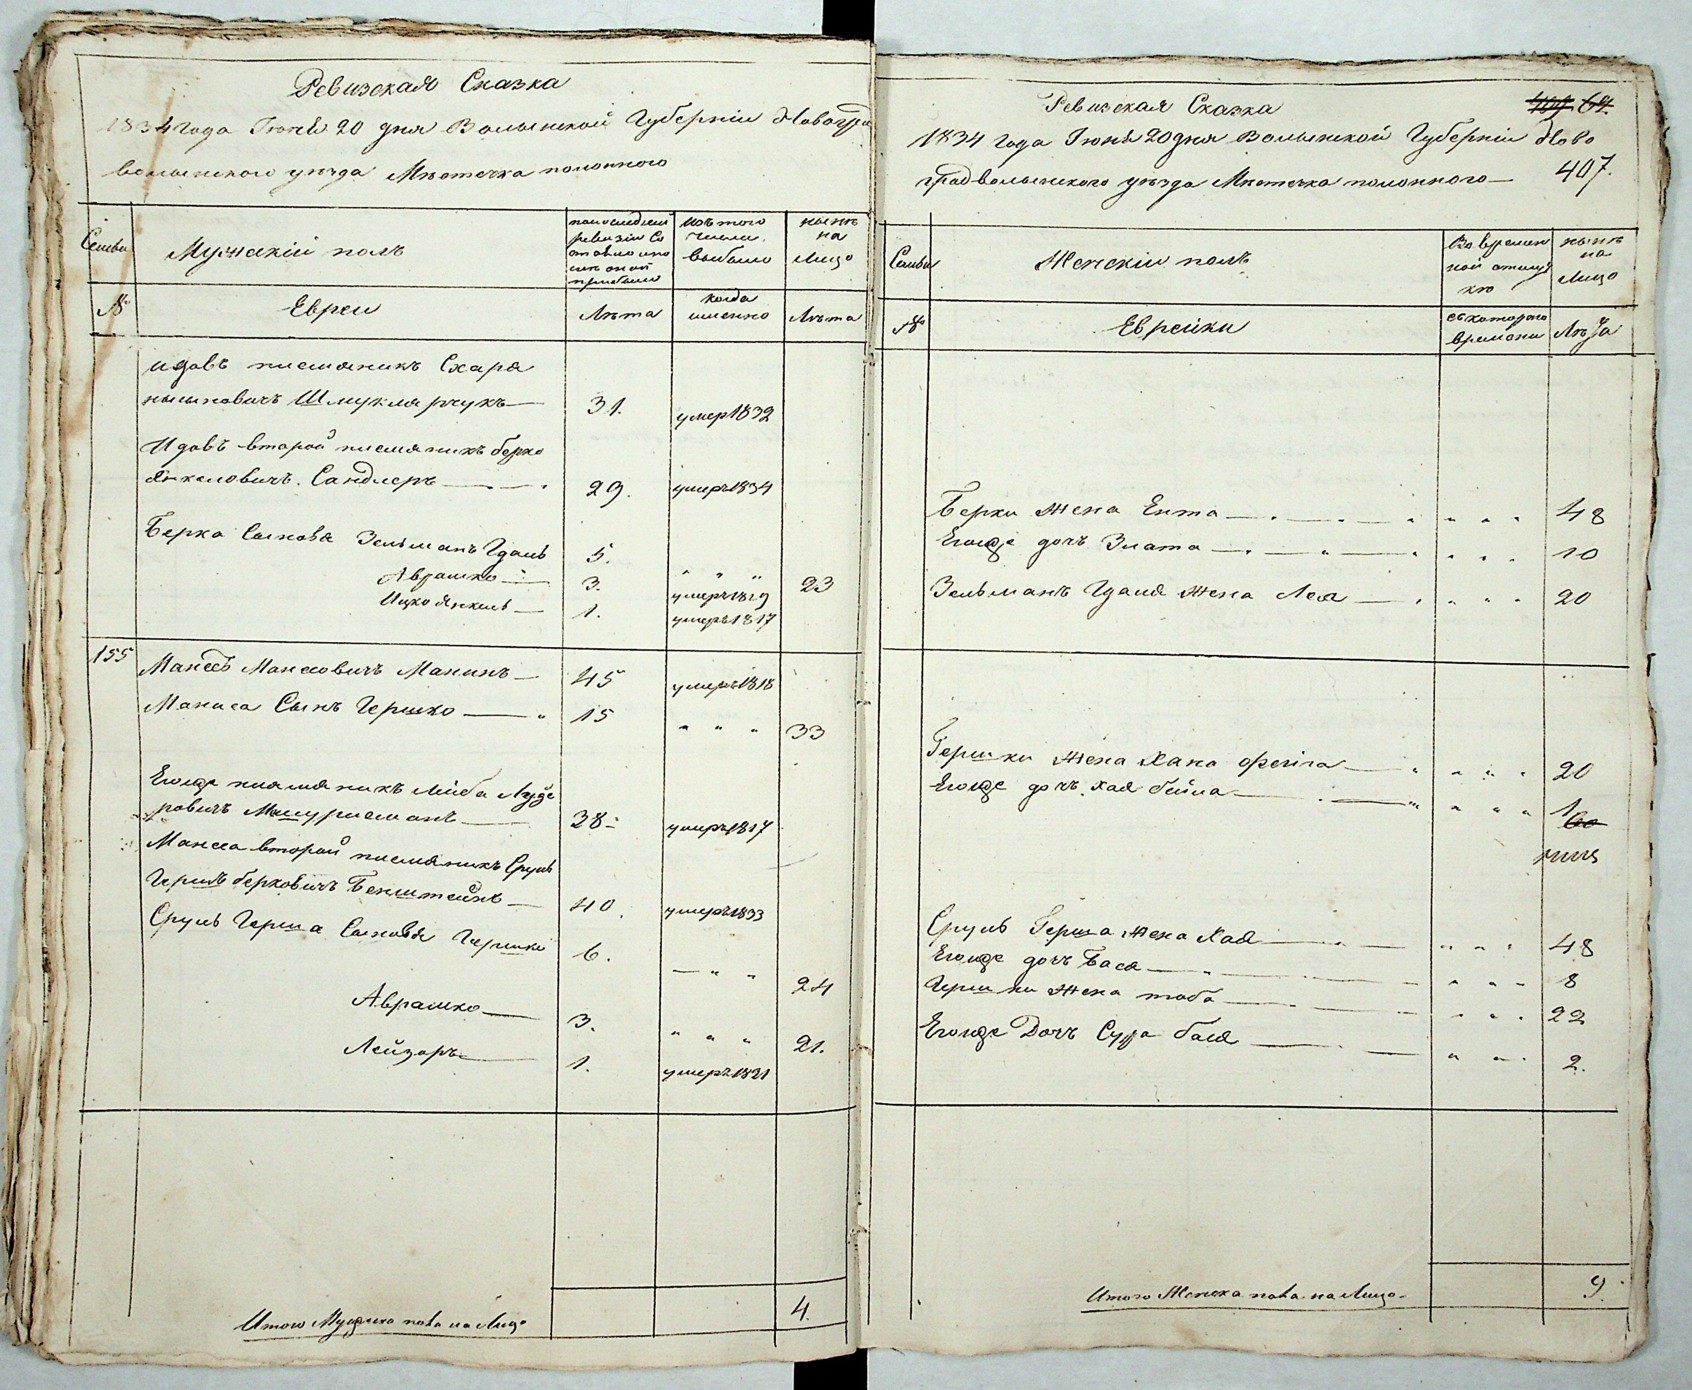 Ревизская Сказка
1834 года Іюня 20 дня Волынской Губерніи Новоград
волынского уѣзда Мѣстечка полонного
Семьи
Мужскій полъ
по последней
ревизіи со
стояло и по
слѣ оной
прибыло
изъ того
числа
выбыло
нынѣ
на
лицо
№
Евреи
Лѣта
когда
именно
Лѣта
племяникъ Схаря
Шмуклярчукъ 31. умер 1832
второй племяникъ берко
Янкеловичъ Сандлеръ 29. умеръ 1834
Берка Сыновя Зельманъ Гдаль 5. " " " 23
Аврамко 3. умеръ 1819
Ицко Янкель 1. умеръ 1817
155
Манесъ Манесовичъ Манинъ 45 умеръ 1818
Маниса Сынъ Гершко 15 " " " 33
Егожъ племяникъ Лейба
Мишурисманъ 38 умеръ 1817
Манеса второй племяникъ Сруль
Гершъ берковичъ Бекштейнъ 40. умеръ 1833
Сруль Герша Сыновя Гершко 6. " " 24
Аврамко 3. " " " 21.
Лейзоръ 1. умеръ 1821
Итого Мужска пола на Лицо 4.
Ревизская Сказка
409 64.
1834 Года Іюня 20 дня Волынской Губерніи Ново
градволынского уѣзда Мѣстечка полонного
407.
Семьи
Женскій полъ
Во времен
ной отлуч
кѣ
нынѣ
на
лицо
№
Еврейки
съ которого
времени
Лѣта
Берки жена Ента " " " 48
Егожъ дочъ Злата " " " 10
Зельманъ Гдаля жена Лея " " " 20
Гершки жена Хана Фейга " " " 20
Егожъ дочъ Хая бейла " " " 1
Сруль Герша жена Хая " " " 48
Егожъ дочъ Бася " " " 8
Гершки жена тоба " " " 22
Егожъ Дочъ Сура бася " " " 2.
Итого Женска пола на Лицо 9.